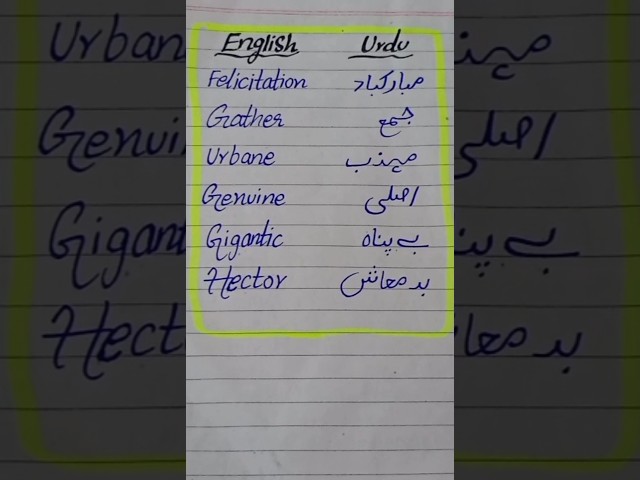 English Urdu
Felicitation مبارکباد
Gather جمع
Urbane مہذب
Genuine اصلی
Gigantic بے پناہ
Hector بدمعاش